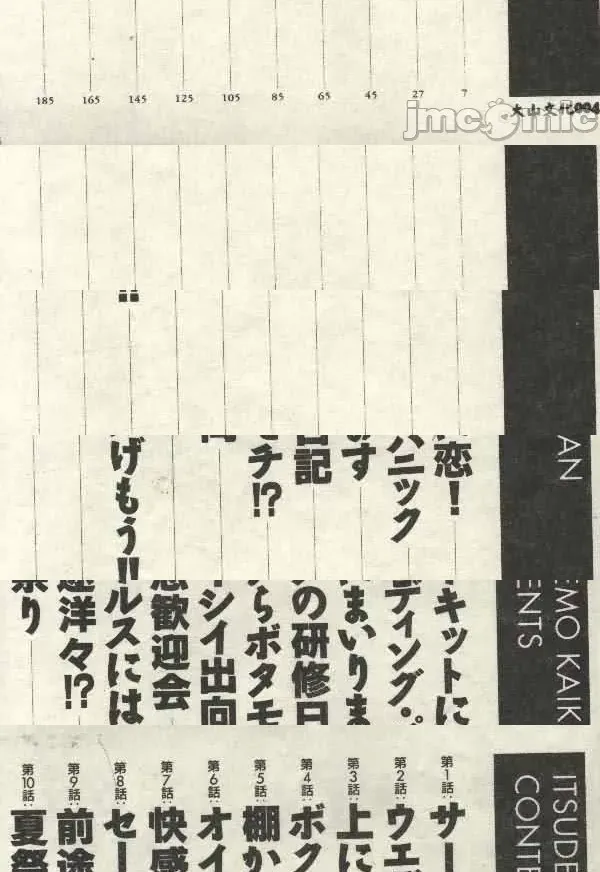 ITSUDEMO KAIKAN
CONTENTS
第1話：サーキットに恋！ 7
第2話：ウエディング・パニック 27
第3話：上にまいります 45
第4話：ボクの研修日記 65
第5話：棚からボタモチ!? 85
第6話：オイシイ出向 105
第7話：快感歓迎会 125
第8話：セールスにはげもう!! 145
第9話：前途洋々!? 165
第10話：夏祭り 185
大山文化004
jmcomic